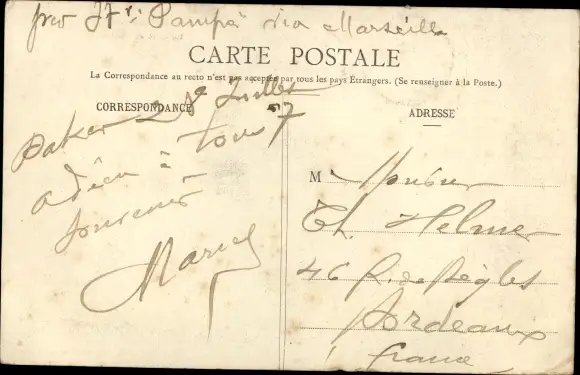 via Marseille
CARTE POSTALE
La Correspondance au recto n'est pas acceptée par tous les pays Étrangers. (Se renseigner à la Poste.)
CORRESPONDANCE
ADRESSE
Dakar 28 Juillet
adieu à tous
souvenir
Marcel
M Monsieur
Th. Helme
46 R. de Bègles
Bordeaux
france